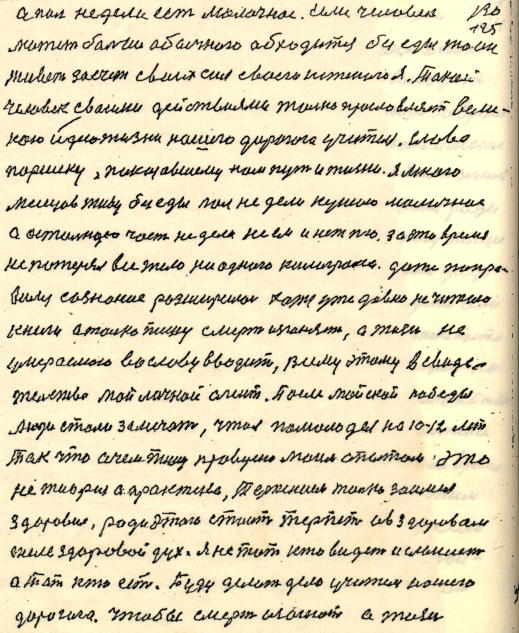 а пол недели ест молочное. Если человек 130
125
может больше обычного обходится без еды то он
живет засчет своих сил своего Я. Такой
человек своими действиями только прославляет вели-
кою идею жизни нашего дорогога учителя. Слово
паршику, показавшему нам путь и жизни. Я много
месяцов живу без еды пол недели кушаю молочное
а остальную част недели не ем и не пю. заэто время
не потерял все тело ниодного килограма. даже поправ
сознание розширилос хотя уже довно не читаю
книги а только пишу смерт изгонят, а жизн не
умераемою вослову вводит, всему этому в свиде-
телство мой личной опит. После майской победы
люди стали замечат, что я помолодел на 10-12 лет
так что очем пишу проверено моим опытом это
не теория а практика, Терпением толко займеш
здоровия, ради этого стоит терпет а в здоровам
теле здоровой дух. Я не тот кто видет и слышет
а тот кто ест. Буду делат дело учителя нашего
дорогога. Чтобы смерт изгонят а жизн